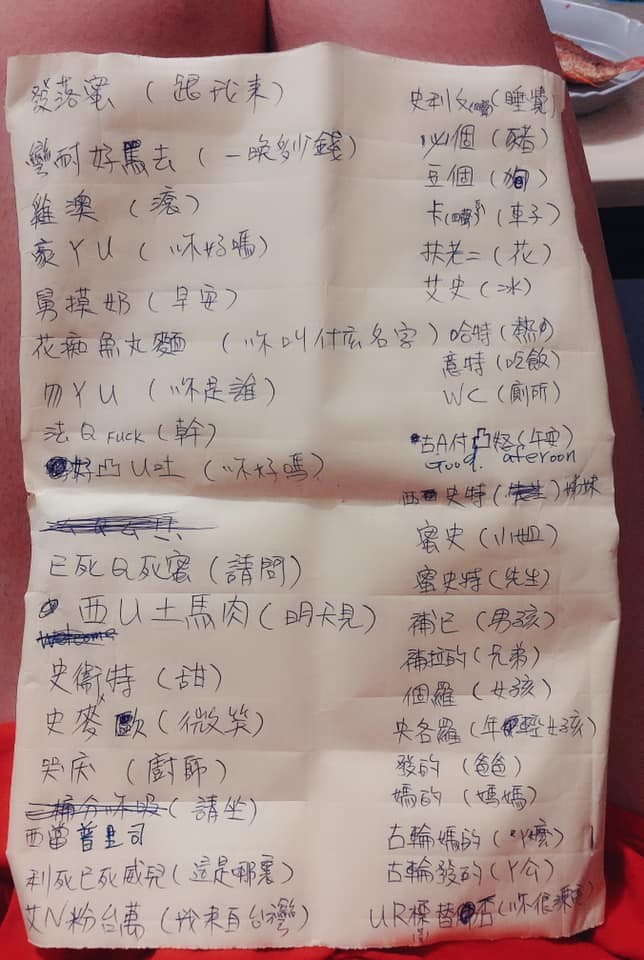 發落蜜 (跟我來)
彎耐好罵去 (一晚多少錢)
雞澳 (滾)
豪ㄚU (你好嗎)
舅摸奶 (早安)
花痴魚丸麵 (你叫什広名字)
勿ㄚU (你是誰)
法Q FUCK (幹)
好凸U吐 (你好嗎)
已死Q死蜜 (請問)
西U土馬肉 (明天見)
Welcome
史衛特 (甜)
史麥歐 (微笑)
哭床 (廚師)
(請坐)
西當普里司
利死已死威兒 (這是哪裏)
艾N粉台萬 (我來自台灣)
史利父 (睡覺)
必個 (豬)
豆個 (狗)
卡 (車子)
扶老二 (花)
艾史 (冰)
哈特 (熱の)
意特 (吃飯)
WC (廁所)
古A付凸怒 (午安)
Good. aferoon
西史特 姊妹
蜜史 (小姐)
蜜史特 (先生)
補已 (男孩)
補拉的 (兄弟)
個羅 (女孩)
央名羅 (年輕女孩)
發的 (爸爸)
媽的 (媽媽)
古輪媽的 (ㄚ嬤)
古輪發的 (ㄚ公)
UR標替否 (你很漂亮)